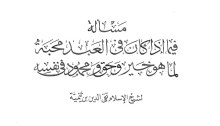 مسألة
فيما إذا كان في العبد محبة
لما هو خير وحق ومحمود في نفسه
لشيخ الإسلام تقي الدين بن تيمية